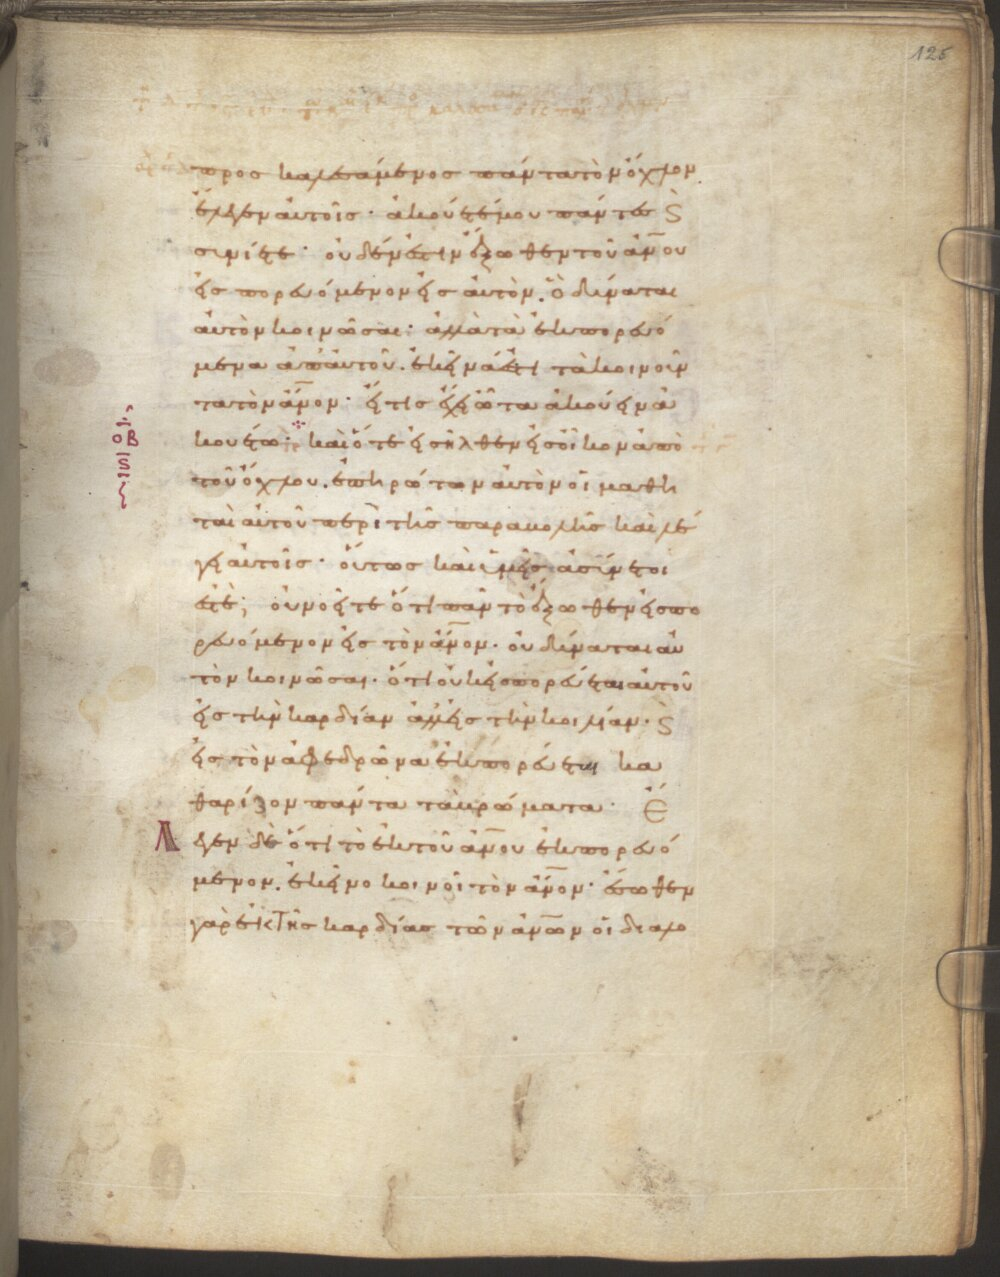 125
προσκαλεσάμενος πάντα τὸν ὄχλον
ἔλεγεν αὐτοῖς· ἀκούετέ μου πάντες ϗ
συνίετε· οὐδέν ἐστιν ἔξωθεν τοῦ ἀν̅ου
εἰσπορευόμενον εἰς αὐτὸν. ὃ δύναται
αὐτὸν κοινῶσαι· ἀλλὰ τὰ ἐκπορευό
μενα ἀπ' αὐτοῦ. ἐκεῖνά ἐστι τὰ κοινοῦν
τα τὸν ἄν̅ον· εἴ τις ἔχει ὦτα ἀκούειν ἀ
κουέτω· καὶ ὅτε εἰσῆλθεν εἰς οἶκον ἀπὸ
τοῦ ὄχλου. ἐπηρώτων αὐτὸν οἱ μαθη
ταὶ αὐτοῦ περὶ τῆς παραβολῆς καὶ λέ
γει αὐτοῖς· οὕτως καὶ ὑμεῖς ἀσύνετοί
ἐστε; οὐ νοεῖτε ὅτι πᾶν τὸ ἔξωθεν εἰσπο
ρευόμενον εἰς τὸν ἄν̅ον· οὐ δύναται αὐ
τὸν κοινῶσαι· ὅτι οὐκ εἰσπορεύεται αὐτοῦ
εἰς τὴν καρδίαν ἀλλ' εἰς τὴν κοιλίαν· ϗ
εἰς τὸν ἀφεδρῶνα ἐκπορεύεται κα
θαρίζον πάντα τὰ βρώματα· ἔ
λεγεν δὲ ὅτι τὸ ἐκ τοῦ ἀν̅ου ἐκπορευό
μενον. ἐκεῖνο κοινοῖ τὸν ἄν̅ον· ἔσωθεν
γὰρ ἐκ τῆς καρδίας τῶν ἀν̅ων οἱ διαλο